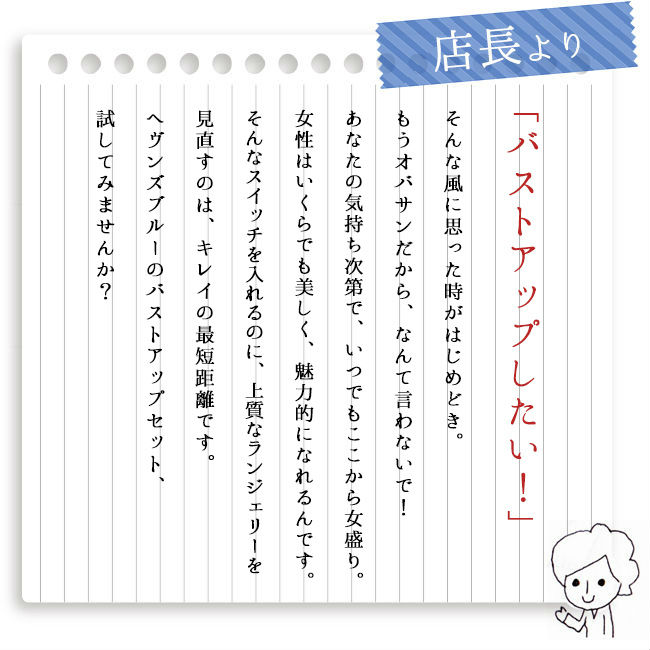 店長より
「バストアップしたい！」
そんな風に思った時がはじめどき。
もうオバサンだから、なんて言わないで！
あなたの気持ち次第で、いつでもここから女盛り。
女性はいくらでも美しく、魅力的になれるんです。
そんなスイッチを入れるのに、上質なランジェリーを
見直すのは、キレイの最短距離です。
ヘヴンズブルーのバストアップセット、
試してみませんか？